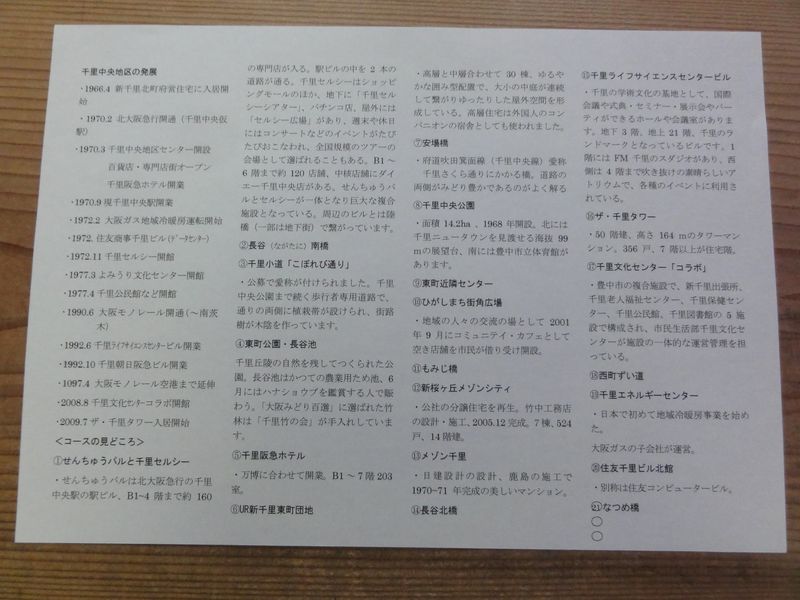 千里中央地区の発展
・1966.4 新千里北町府営住宅に入居開
始
・1970.2 北大阪急行開通（千里中央仮
駅）
・1970.3 千里中央地区センター開設
百貨店・専門店街オープン
千里阪急ホテル開業
・1970.9 現千里中央駅開業
・1972.2 大阪ガス地域冷暖房運転開始
・1972. 住友商事千里ビル（ﾃﾞｰﾀｾﾝﾀｰ）
・1972.11 千里セルシー開館
・1977.3 よみうり文化センター開館
・1977.4 千里公民館など開館
・1990.6 大阪モノレール開通（～南茨
木）
・1992.6 千里ﾗｲﾌｻｲｴﾝｽｾﾝﾀｰビル開業
・1992.10 千里朝日阪急ビル開業
・1097.4 大阪モノレール空港まで延伸
・2008.8 千里文化ｾﾝﾀｰコラボ開館
・2009.7 ザ・千里タワー入居開始
＜コースの見どころ＞
①せんちゅうパルと千里セルシー
・せんちゅうパルは北大阪急行の千里
中央駅の駅ビル、B1~4 階まで約 160
の専門店が入る。駅ビルの中を 2 本の
道路が通る。千里セルシーはショッピ
ングモールのほか、地下に「千里セル
シーシアター」、パチンコ店、屋外には
「セルシー広場」があり、週末や休日
にはコンサートなどのイベントがたび
たびおこなわれ、全国規模のツアーの
会場として選ばれることもある。B1～
6 階まで約 120 店舗、中核店舗にダイ
エー千里中央店がある。せんちゅうパ
ルとセルシーが一体となり巨大な複合
施設となっている。周辺のビルとは陸
橋（一部は地下街）で繋がっています。
②長谷（ながたに）南橋
③千里小道「こぼれび通り」
・公募で愛称が付けられました。千里
中央公園まで続く歩行者専用道路で、
通りの両側に植栽帯が設けられ、街路
樹が木陰を作っています。
④東町公園・長谷池
千里丘陵の自然を残してつくられた公
園。長谷池はかつての農業用ため池、6
月にはハナショウブを鑑賞する人で賑
わう。「大阪みどり百選」に選ばれた竹
林は「千里竹の会」が手入れしていま
す。
⑤千里阪急ホテル
・万博に合わせて開業。B1～7 階 203
室。
⑥UR新千里東町団地
・高層と中層合わせて 30 棟、ゆるや
かな囲み型配置で、大小の中庭が連続
して繋がりゆったりした屋外空間を形
成している。高層住宅は外国人のコン
パニオンの宿舎としても使われました。
⑦安場橋
・府道吹田箕面線（千里中央線）愛称
千里さくら通りにかかる橋。道路の
両側がみどり豊かであるのがよく解る
⑧千里中央公園
・面積 14.2ha 、1968 年開設。北には
千里ニュータウンを見渡せる海抜 99
ｍの展望台、南には豊中市立体育館が
あります。
⑨東町近隣センター
⑩ひがしまち街角広場
・地域の人々の交流の場として 2001
年 9 月にコミュニテイ・カフェとして
空き店舗を市民が借り受け開設。
⑪もみじ橋
⑫新桜ヶ丘メゾンシティ
・公社の分譲住宅を再生。竹中工務店
の設計・施工、2005.12 完成。7 棟、524
戸、14 階建。
⑬メゾン千里
・日建設計の設計、鹿島の施工で
1970~71 年完成の美しいマンション。
⑭長谷北橋
⑮千里ライフサイエンスセンタービル
・千里の学術文化の基地として、国際
会議や式典・セミナー・展示会やパー
ティができるホールや会議室がありま
す。地下 3 階、地上 21 階、千里のラ
ンドマークとなっているビルです。1
階には FM 千里のスタジオがあり、西
側は 4 階まで吹き抜けの素晴らしいア
トリウムで、各種のイベントに利用さ
れている。
⑯ザ・千里タワー
・50 階建、高さ 164 ｍのタワーマン
ション。356 戸、7 階以上が住宅階。
⑰千里文化センター「コラボ」
・豊中市の複合施設で、新千里出張所、
千里老人福祉センター、千里保健セン
ター、千里公民館、千里図書館の 5 施
設で構成され、市民生活部千里文化セ
ンターが施設の一体的な運営管理を担
っている。
⑱西町ずい道
⑲千里エネルギーセンター
・日本で初めて地域冷暖房事業を始め
た。
大阪ガスの子会社が運営。
⑳住友千里ビル北館
・別称は住友コンピュータービル。
㉑なつめ橋
〇
〇